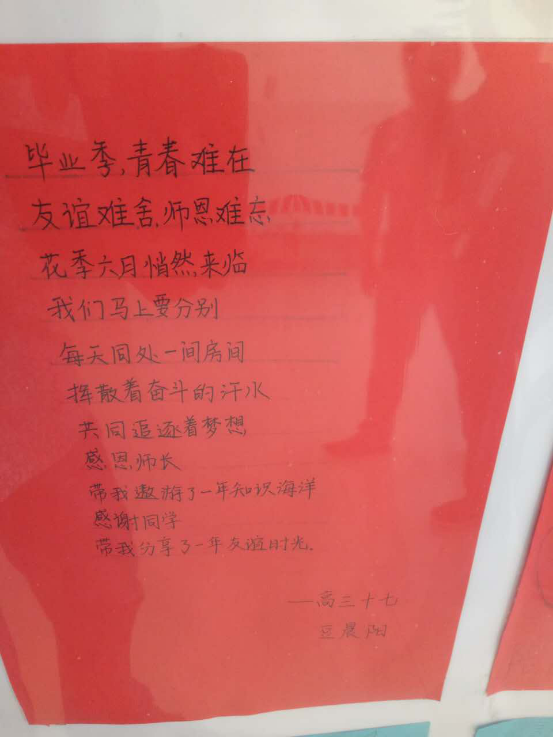 毕业季,青春难在
友谊难舍,师恩难忘
花季六月悄然来临
我们马上要分别
每天同处一间房间
挥散着奋斗的汗水
共同追逐着梦想
感恩师长
带我遨游了一年知识海洋
感谢同学
带我分享了一年友谊时光。
——高三十七
豆晨阳